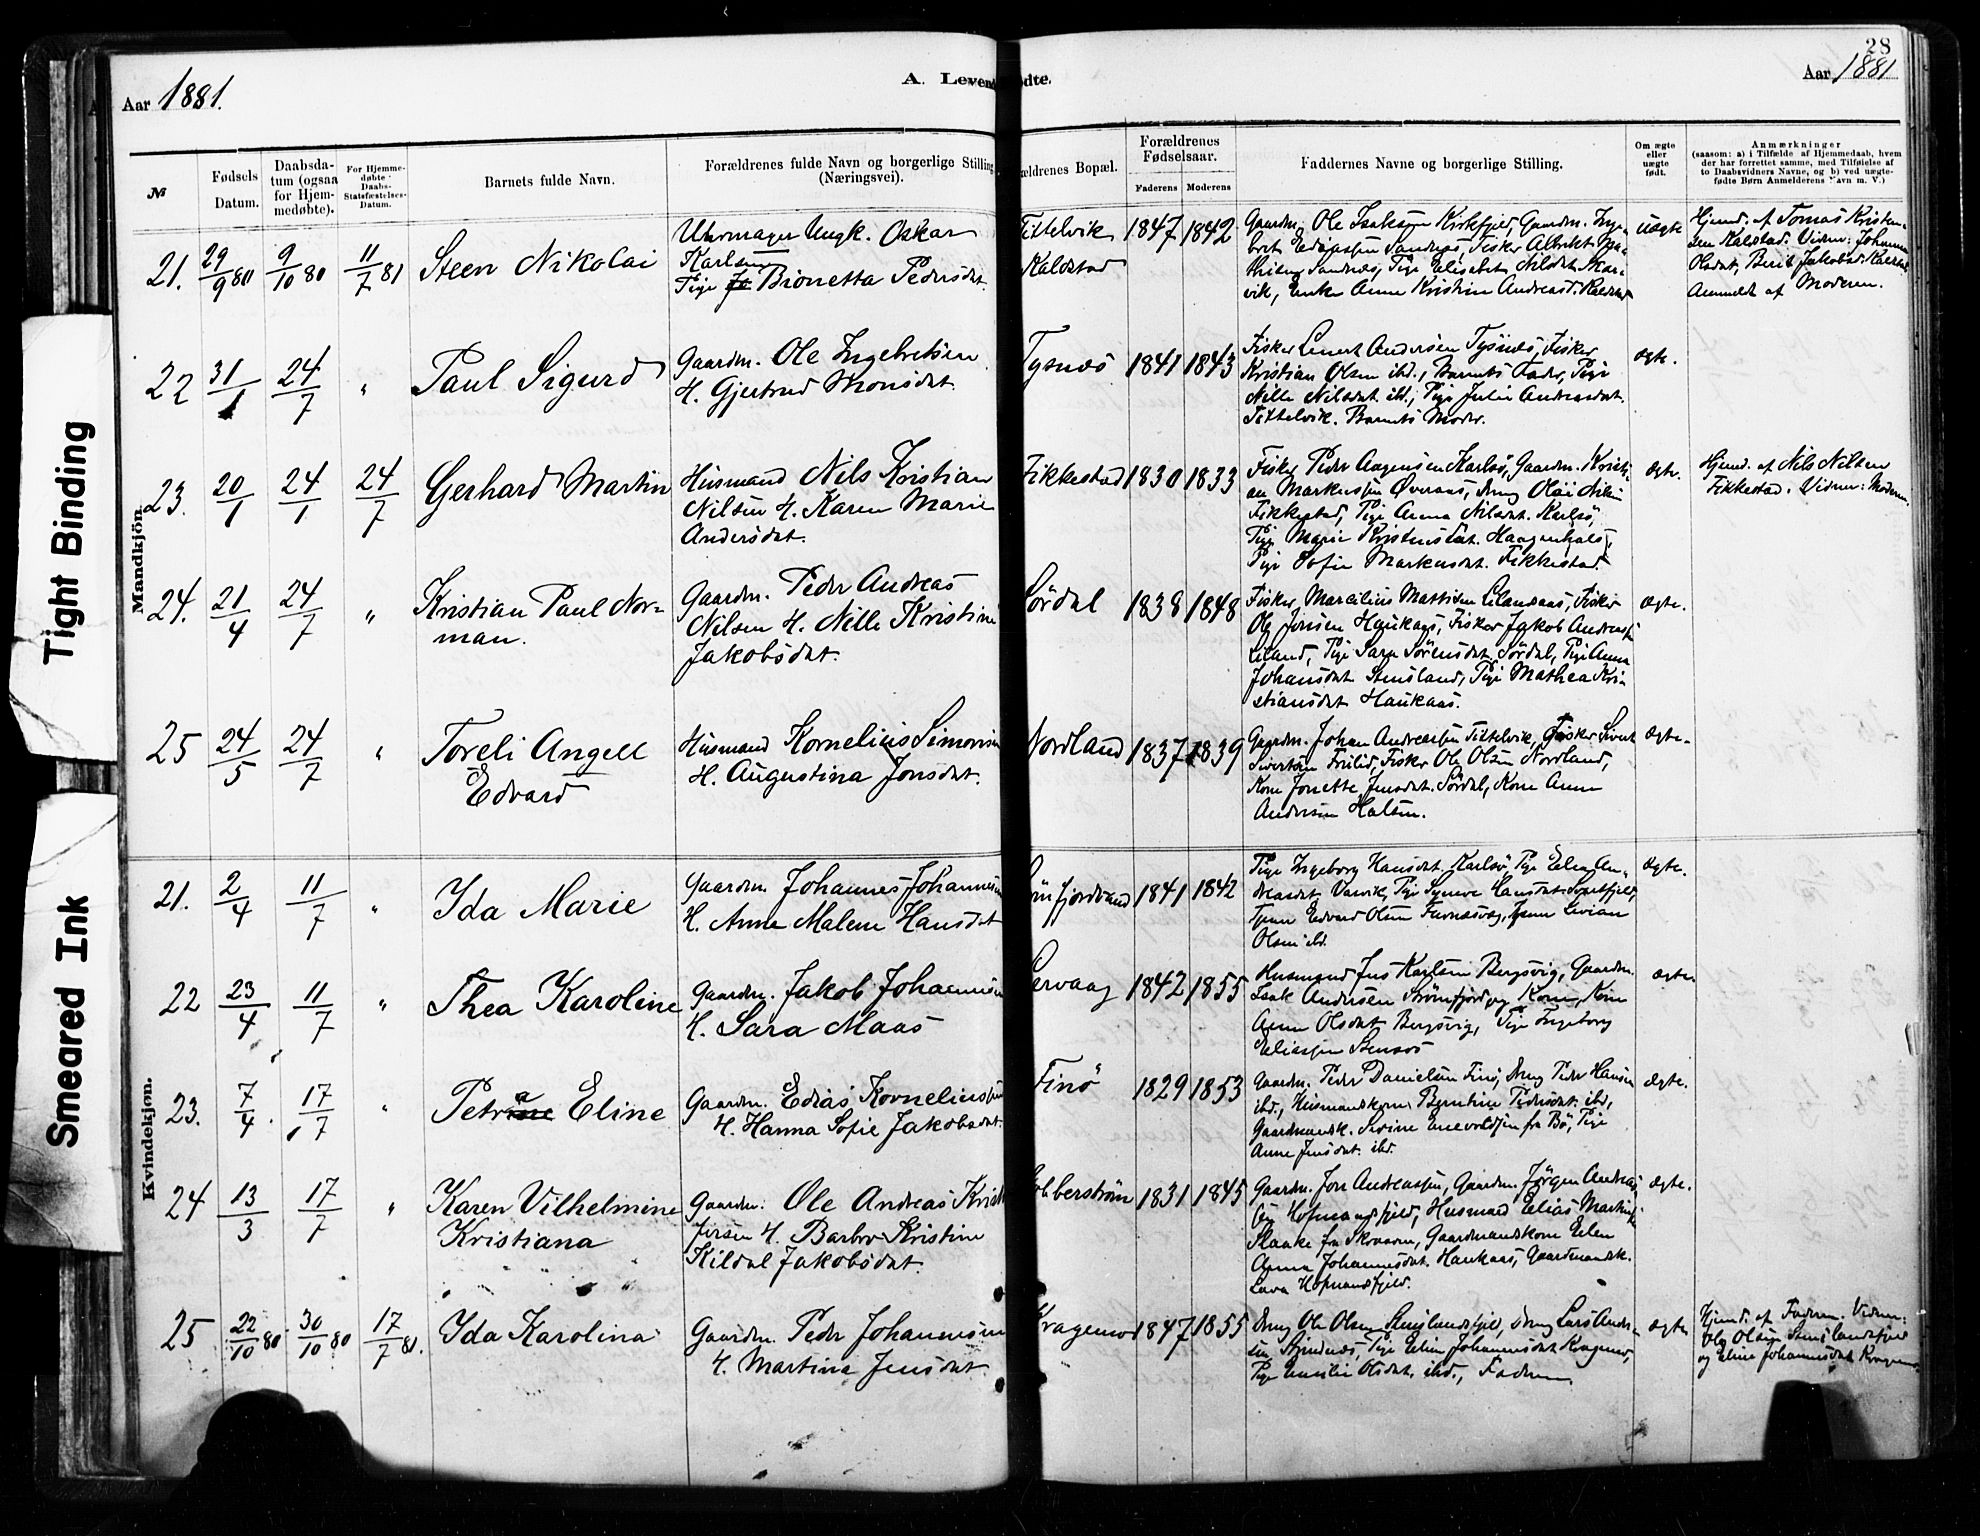 28
Aar 1881.
A. Levendødte.
Aar 1881
№
Fødsels Datum.
Daabsdatum (ogsaa for Hjemmedøbte).
For Hjemmedøbte Daabs-Statsfæstelses-Datum.
Barnets fulde Navn.
Forældrenes fulde Navn og borgerlige Stilling (Næringsvei).
ældrenes Bopæl.
Forældrenes Fødselsaar.
Faderens Moderens
Faddernes Navne og borgerlige Stilling.
Om ægte eller uægte født.
Anmærkninger
(saasom: a) i Tilfælde af Hjemmedaab, hvem
der har forrettet samme, med Tilføielse af
to Daabsvidners Navne, og b) ved uægte-
fødte Børn Anmelderens Navn m. V.)
Mandkjøn.
21. 29/9 80 9/10 80 11/7 81 Steen Nikolai
Uhrmager Ungk. Oskar
Karlsen
Pige Bionetta Pedersdat.
Tittelvik
Kaldstad
1847 1842
Gaardm. Ole Isaksen Kirkfjeld, Gaardm. Inge-
vik, Enke Anne Kristine Andreasd. Kaldstad
uægte
Hjemd. af Tomas Kristen-
sen Kalstad. Vidner: Johanna
Olsdat, Berit Jakobsd. Kalstad
Anmeldt af Moderen.
22 31/1 24/7 " Paul Sigurd
Gaardm. Ole Ingebretsen
H. Gjertrud Monsdat.
Tysnæs 1841 1843
Fisker Lenert Andersen Tysnæs, Fisker
Kristian Olsen ibd., Barnets Fader, Pige
Nille Nilsdat ibd., Pige Julie Andreasdat.
Tittelvik. Barnets Moder.
ægte.
23. 20/1 24/1 24/7 Gerhard Martin
Husmand Nils Kristian
Nilsen H. Karen Marie
Andersdat.
Fikkestad 1830 1833
Fisker Peder Aagensen Karlsø, Gaardm. Kristi-
an Markussen Øveraas, Dreng Olai Nilsen
Fikkestad, Pige Anna Nilsdat. Karlsø,
Pige Marie Kristensdat. Haagenhals,
Pige Sofie Markusdat. Fikkestad.
ægte.
Hjemd. af Nils Nilsen
Fikkestad. Vidner: Moderen
24. 21/4 24/7 " Kristian Paul Nor-
man.
Gaardm. Peder Andreas
Nilsen H. Nille Kristine
Jakobsdat.
Sørdal 1838 1848
Fisker Marcilius Mattisen
Ole Jonsen Haukaas, Fisker Jakob Andreas
Pige Sara Sørensdat. Sørdal, Pige Anna
Johansdat. Stensland, Pige Mathea Kri-
stiansdat Haukaas.
ægte.
25 24/5 24/7 " Toreli Angell
Edvard
Husmand Kornelius Simonsen
H. Augustina Jonsdat.
Nordland 1837 1839
Gaardm. Johan Andreassen Tittelvik, Fisker Sivert
Sivertsen Friild, Fisker Ole Olsen Nordland,
Kone Jonette Jensdat. Sørdal, Kone Anne
Andersen Halsen.
ægte.
Kvindekjøn.
21. 2/4 11/7 " Ida Marie
Gaardm. Johannes Johannesen
H. Anne Malene Hansdat
1841 1842
Pige Ingeborg Hansdat Karlsø, Pige Elen An-
dreasdat Vasvik, Pige Synove
Edvard Olsen
Olsen ibd.
ægte.
22 23/4 11/7 " Thea Karoline
Gaardm. Jakob Johannesen
H. Sara Maas
Lervaag 1842 1855
Husmand Jens Karlsen Bergsvig, Gaardm.
Isak Andersen Strømfjord og Kone, Kone
Anne Olsdat Bergsvig, Pige Ingeborg
Eliassen
ægte
23. 7/4 17/7 " Petra Eline
Gaardm. Edias Kornelius
H. Hanna Sofie Jakobsdat.
Finø 1829 1853
Gaardm. Peder Danielsen Finø, Dreng Peder Hansen
ibd., Husmandskone Berntine Pedersdat. ibd.,
Gaardmandsk. Enevoldsen fra Bø, Pige
Anne Jensdat. ibd.
ægte.
24 13/3 17/7 " Karen Vilhelmine
Kristiana
Gaardm. Ole Andreas Krist
Jensen H. Barbro Kristine
Kildal Jakobsdat.
1831 1845
Gaardm. Jon Andreassen, Gaardm. Jørgen Andreas
Hofmandsfjeld, Husmand Elias
fra Skroven, Gaardmandskone Elen
Anna Johannesdat. Haukaas, Gaardmandsk.
Lava Hofmansfjeld.
ægte.
25 22/10 80 30/10 80 17/7 81. Ida Karolina
Gaardm. Peder Johannesen
H. Martina Jensdat.
Kragenes 1847 1855
Dreng Ole Olsen Stenslandsfjeld, Dreng Lars Ander-
sen Pige Eline Johannesdat Kragenes,
Pige Emilie Olsdat. ibd., Faderen.
ægte
Hjemd. af Faderen. Vidner:
Ole Olsen Stenslandsfjeld
og Eline Johannesdat Kragenes
Tight Binding
Smeared Ink